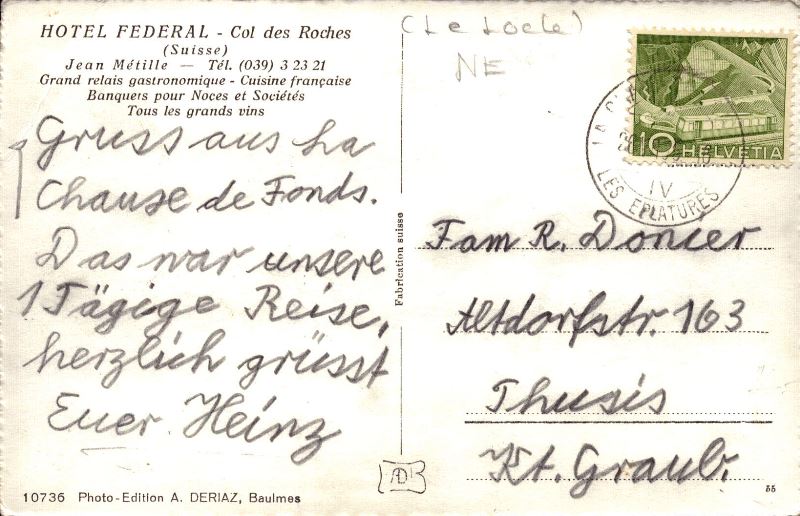 HOTEL FEDERAL - Col des Roches
(Suisse)
Jean Métille — Tél. (039) 3 23 21
Grand relais gastronomique - Cuisine française
Banquers pour Noces et Sociétés
Tous les grands vins
Gruss aus La
Chause de Fonds.
Das war unsere
1 Tägige Reise,
herzlich grüsst
Euer Heinz
10736 Photo-Edition A. DERIAZ, Baulmes
Fabrication suisse
(Le Locle)
NE
10 HELVETIA
IV
LES EPLATURES
Fam R. Doncer
Altdorfstr. 163
Thusis
Kt. Graub.
AD
55